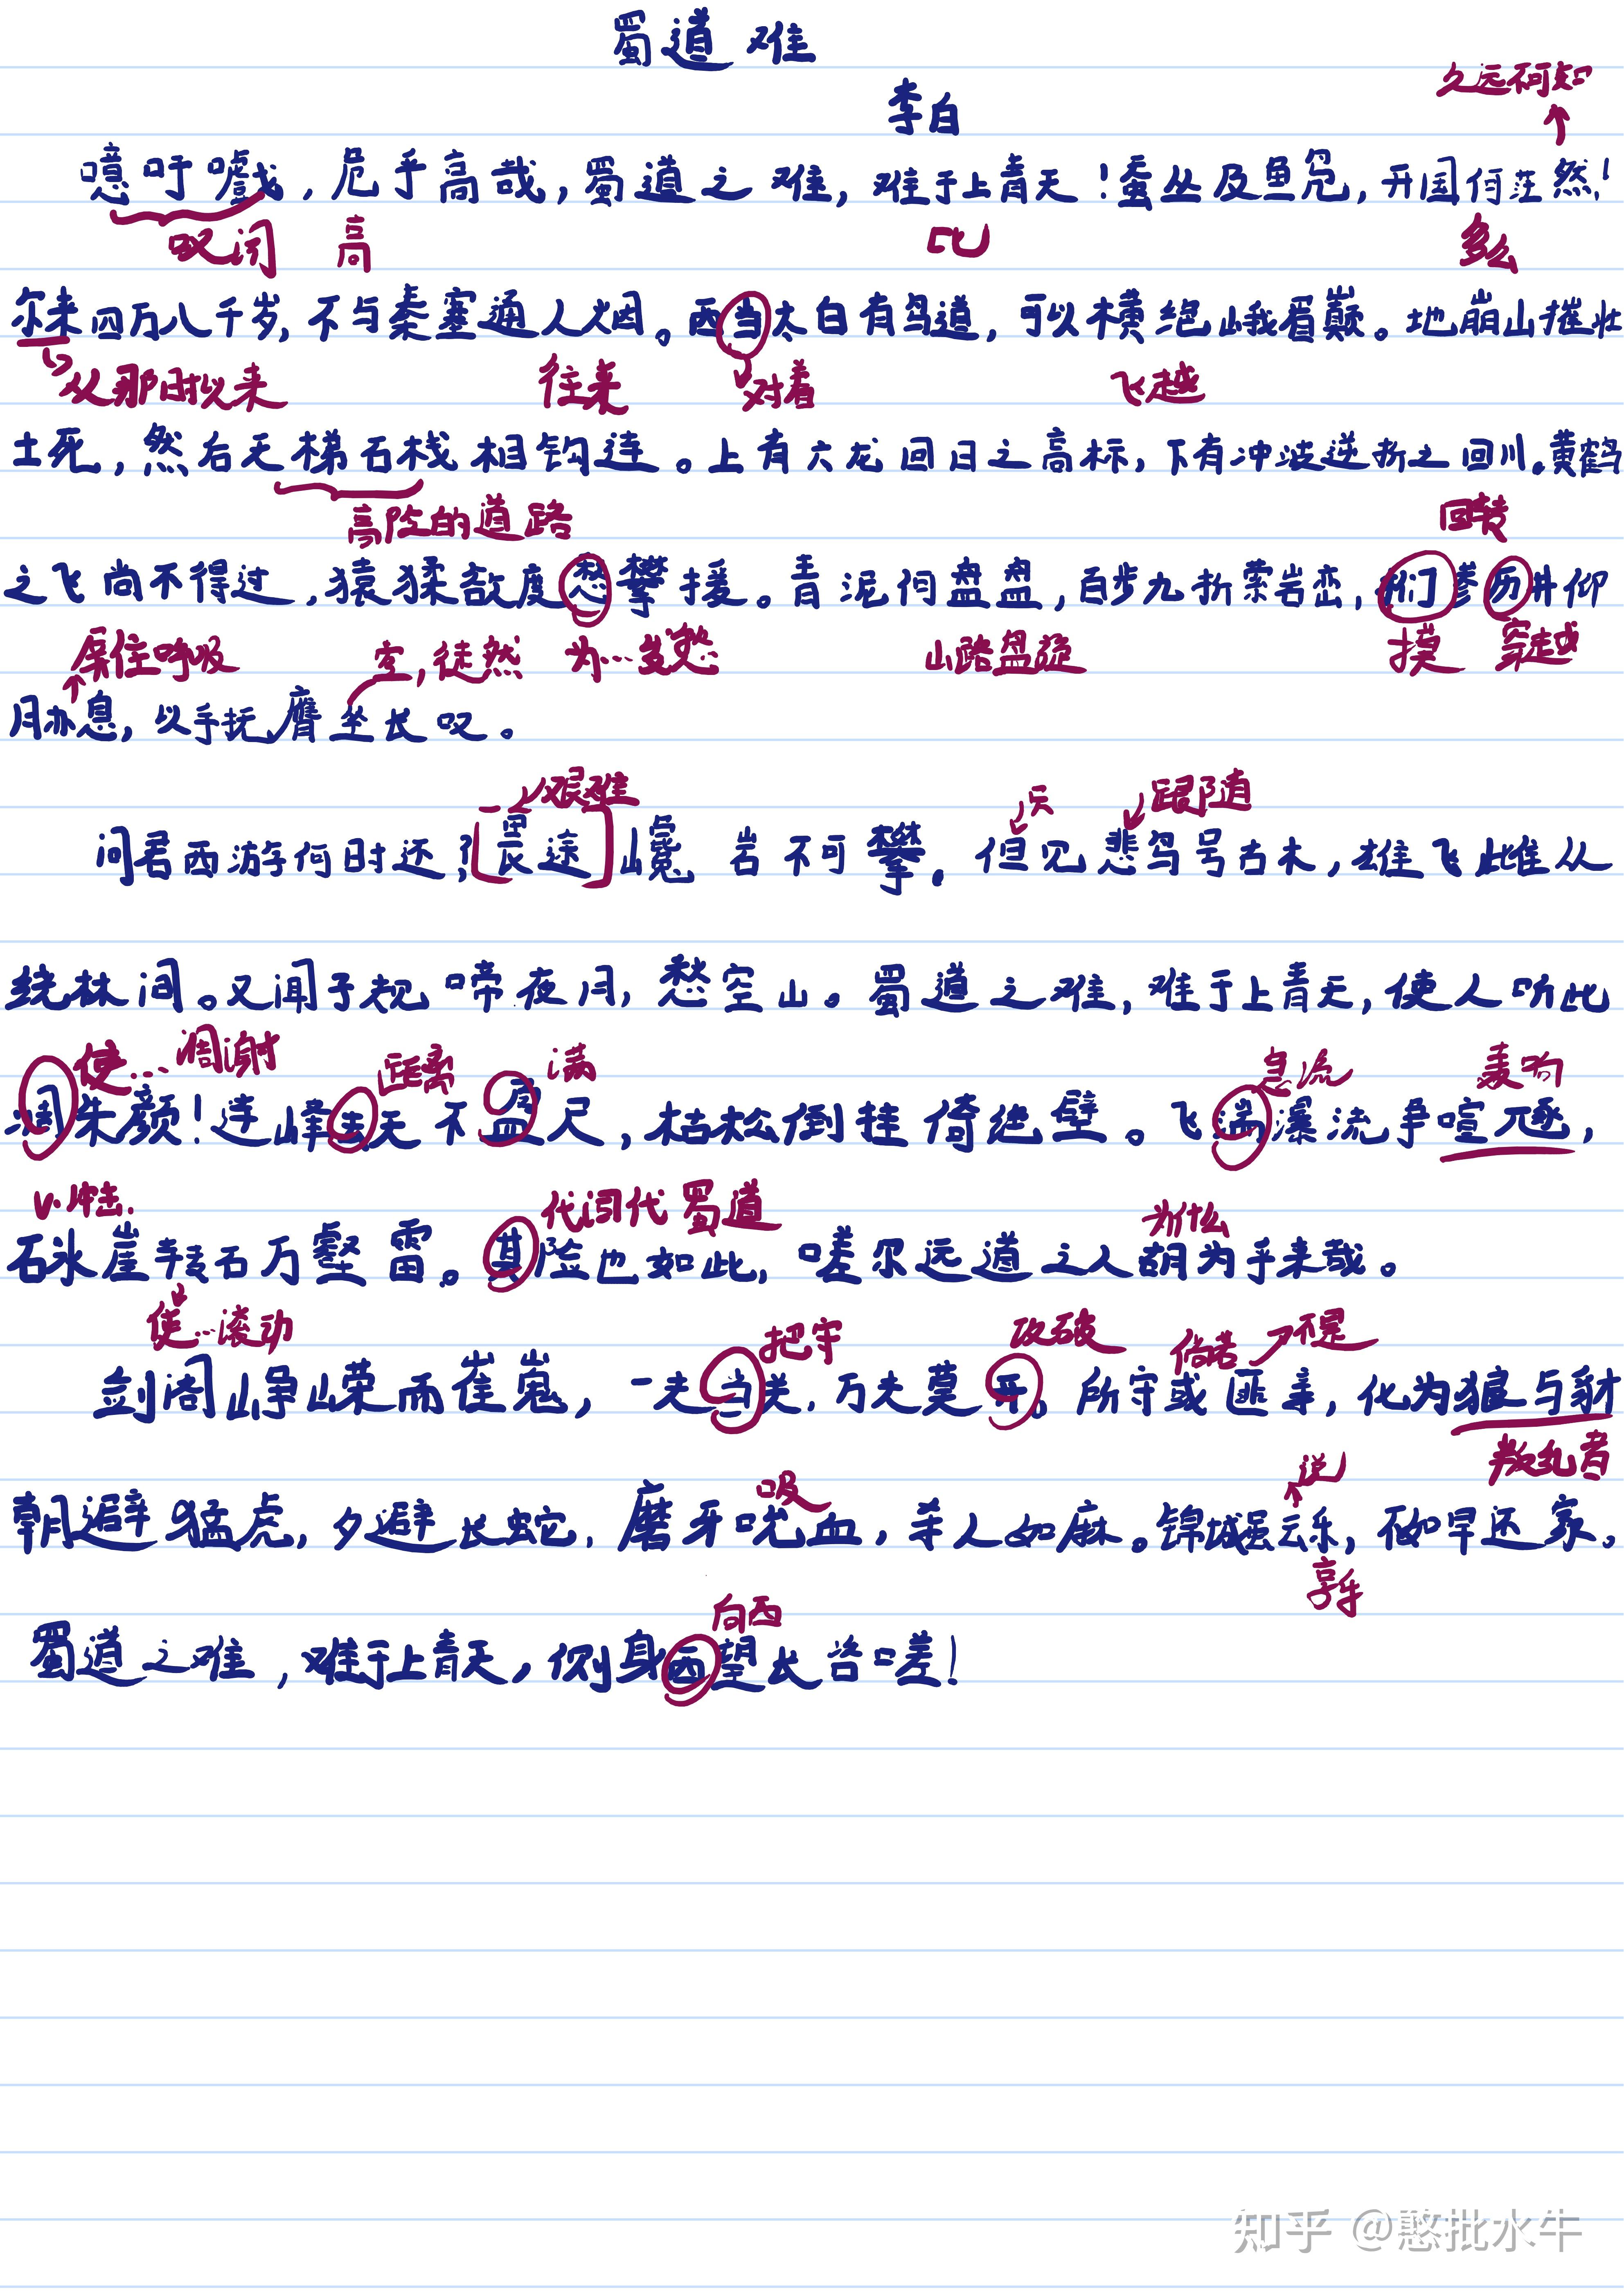 蜀道难
李白
久远不可知
噫吁嚱，危乎高哉，蜀道之难，难于上青天！蚕丛及鱼凫，开国何茫然！
叹词 高 比 多么
尔来四万八千岁，不与秦塞通人烟。西当太白有鸟道，可以横绝峨眉巅。地崩山摧壮
从那时以来 往来 对着 飞越
士死，然后天梯石栈相钩连。上有六龙回日之高标，下有冲波逆折之回川。黄鹤
高险的道路 回转
之飞尚不得过，猿猱欲度愁攀援。青泥何盘盘，百步九折萦岩峦，扪参历井仰
屏住呼吸 空，徒然 为…发愁 山路盘旋 摸 穿越
月亦息，以手抚膺坐长叹。
艰难 只 跟随
问君西游何时还？畏途巉岩不可攀。但见悲鸟号古木，雄飞雌从
绕林间。又闻子规啼夜月，愁空山。蜀道之难，难于上青天，使人听此
使…凋谢 距离 满 急流 轰响
凋朱颜！连峰去天不盈尺，枯松倒挂倚绝壁。飞湍瀑流争喧豗，
冲击 代词代蜀道 为什么
砯崖转石万壑雷。其险也如此，嗟尔远道之人胡为乎来哉。
使…滚动 把守 攻破 倘若 不是
剑阁峥嵘而崔嵬，一夫当关，万夫莫开，所守或匪亲，化为狼与豺
叛乱者
吸 说
朝避猛虎，夕避长蛇，磨牙吮血，杀人如麻。锦城虽云乐，不如早还家。
享乐
向西
蜀道之难，难于上青天，侧身西望长咨嗟！
知乎 @憨批水牛